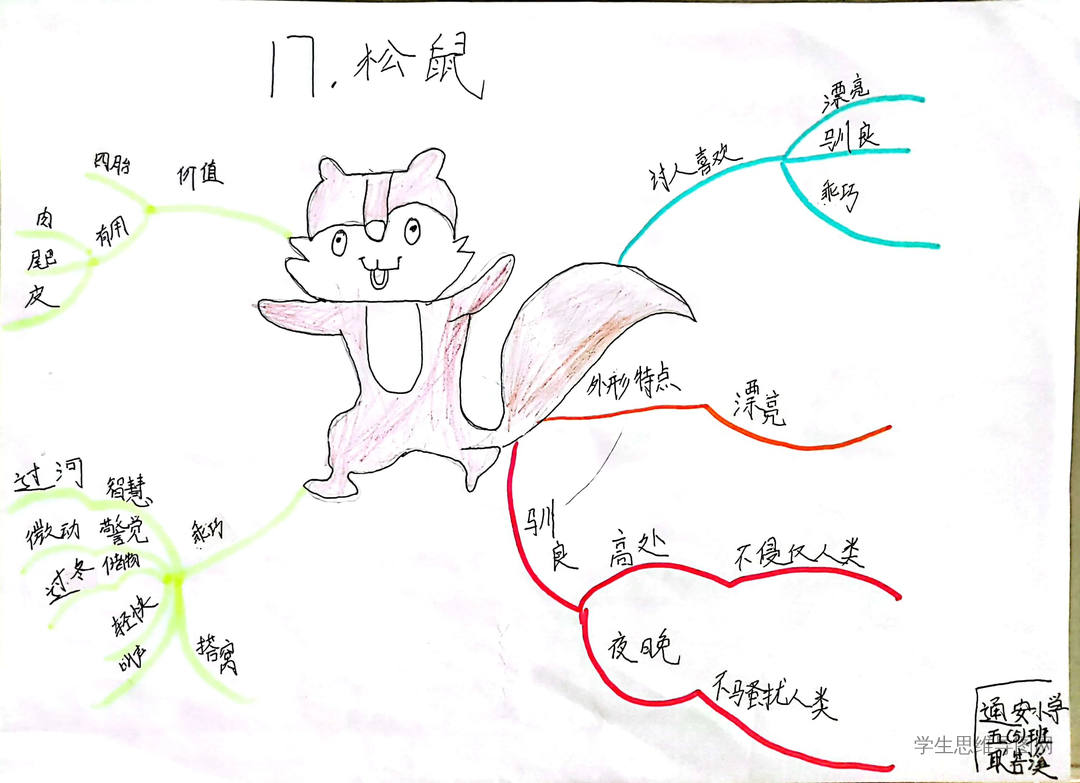 17.松鼠
讨人喜欢
漂亮
驯良
乖巧
外形特点
漂亮
驯良
高处
不侵仅人类
夜晚
不骚扰人类
乖巧
智慧
过河
警觉
微动
储物
过冬
轻快
叫声
搭窝
价值
四胎
有用
肉
尾巴
皮
通安小学
五(5)班
学生思维导图网